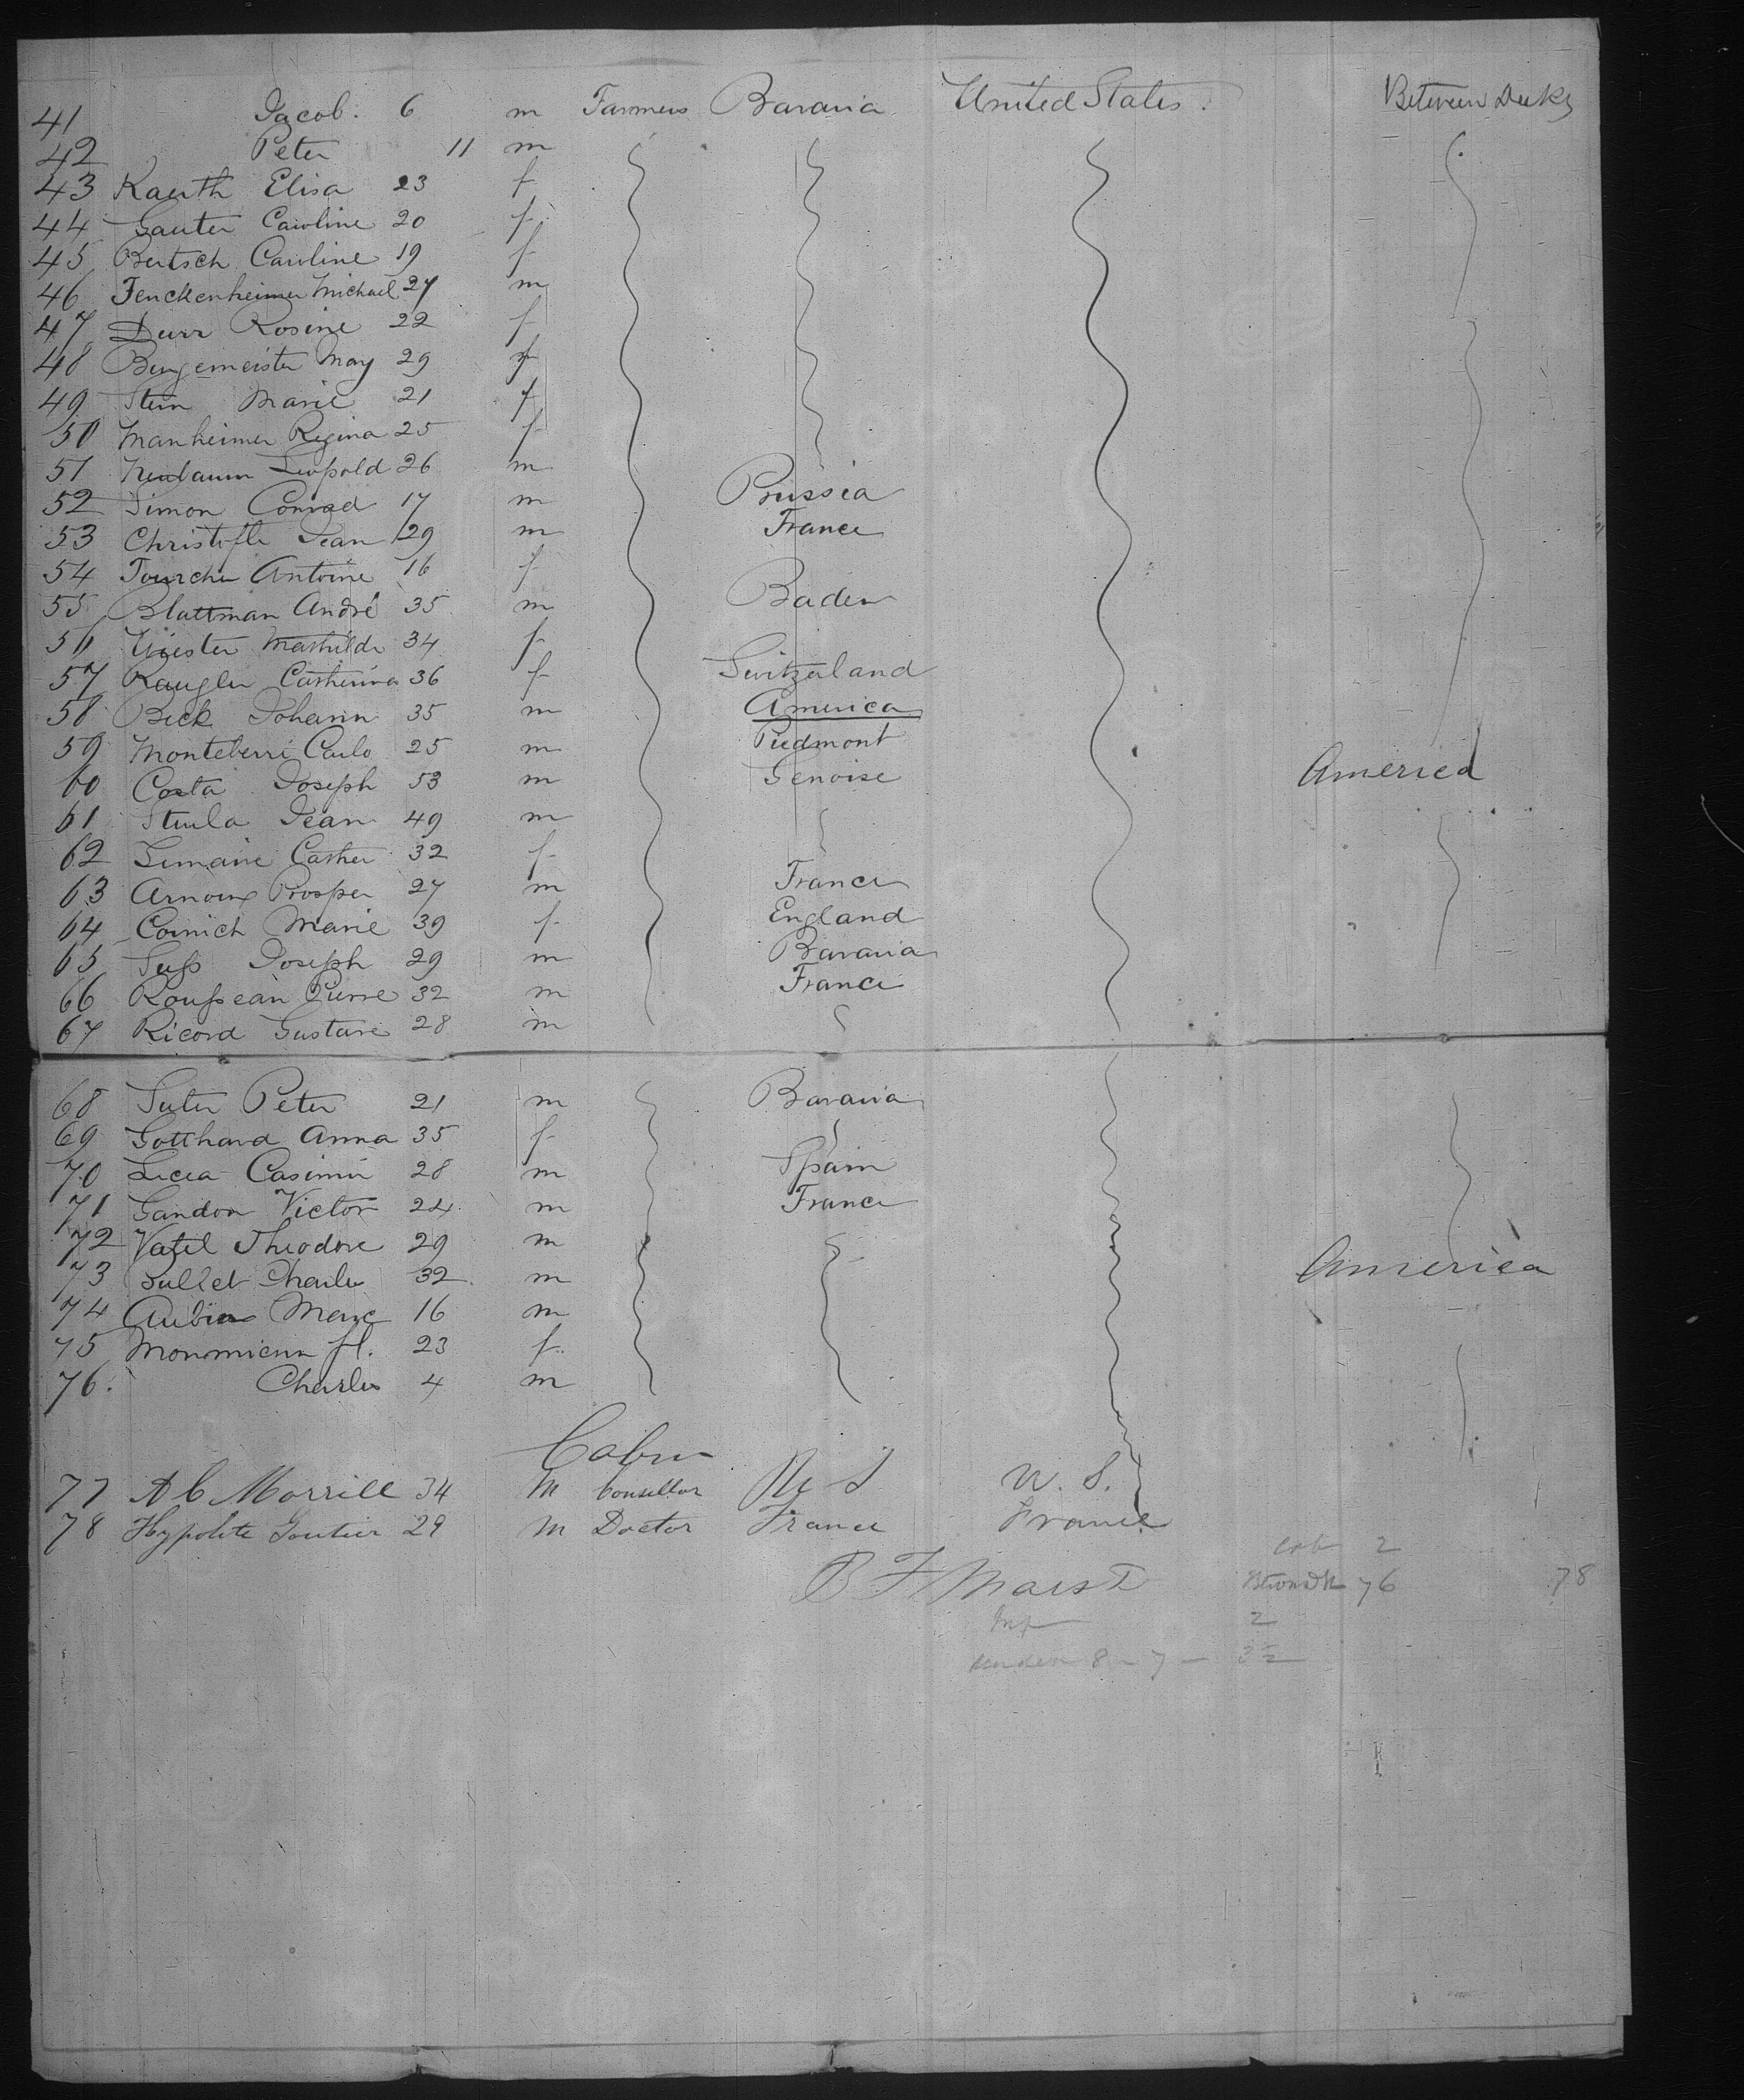 41 Jacob. 6 m Farmers Bavaria United States. Between Decks
42 Peter 11 m
43 Kauth Elisa 23 f
44 Gauter Caroline 20 f
45 Bertsch Caroline 19 f
46 Fenckenheimer Michael 27 m
47 Durr Rosine 22 f
48 Burgemeister May 29 f
49 Stern Marie 21 f
50 Manheimer Regina 25 f
51 Neubaum Leopold 26 m
52 Simon Conrad 17 m Prussia
53 Christofle Jean 29 m France
54 Tourcher Antoine 16 f
55 Blattman André 35 m Baden
56 Mathilde 34 f
57 Kaugler Catherina 36 f Switzerland
58 Beck Johann 35 m America
59 Monteberri Carlo 25 m Piedmont
60 Costa Joseph 53 m Genoise America
61 Sturla Jean 49 m
62 Lemaire Cather 32 f
63 Arnoux Prosper 27 m France
64 Cornich Marie 39 f England
65 Suss Joseph 29 m Bavaria
66 Rousseau Pierre 32 m France
67 Ricord Gustave 28 m
68 Suter Peter 21 m Bavaria
69 Gotthard Anna 35 f
70 Licea Casimir 28 m Spain
71 Gandon Victor 24 m France
72 Vatel Theodore 29 m
73 Bullet Charles 32 m America
74 Aubin Marc 16 m
75 fl. 23 f
76. Charles 4 m
Cabin
77 A C Morrill 34 M Consellor U S U. S.
78 Hypolite Goutier 29 M Doctor France France
cab 2
B F Marsh 76 78
Inf 2
under 8 - 7 - 3½